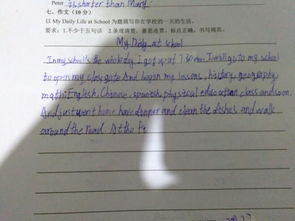 Peter is shorter than Mary.
七、作文（10分）
以 My Daily Life at School 为题描写你在学校的一天的生活。
要求：1.不少于五句话 2.条理清楚，意思连贯，标点正确，书写规范。
My Daily at school
In my school's the I got up at 7 I will go to my school
to open my class gate And began my lessons, history, geography
math, English, Chinese, spanish, physical education class and soon.
And just went home have dinner and clean the dishes and walk
around the road. At the